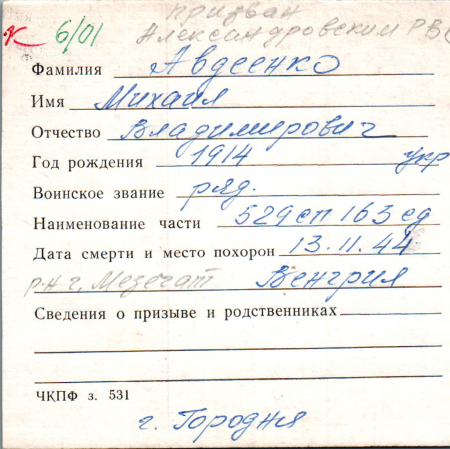 призван
К 6/01 Александровским РВ
Фамилия Авдеенко
Имя Михаил
Отчество Владимирович
Год рождения 1914 укр
Воинское звание ряд.
Наименование части 529 сп 163 сд
Дата смерти и место похорон 13.11.44
р-н г. Мезечат Венгрия
Сведения о призыве и родственниках
ЧКПФ з. 531
г. Городня